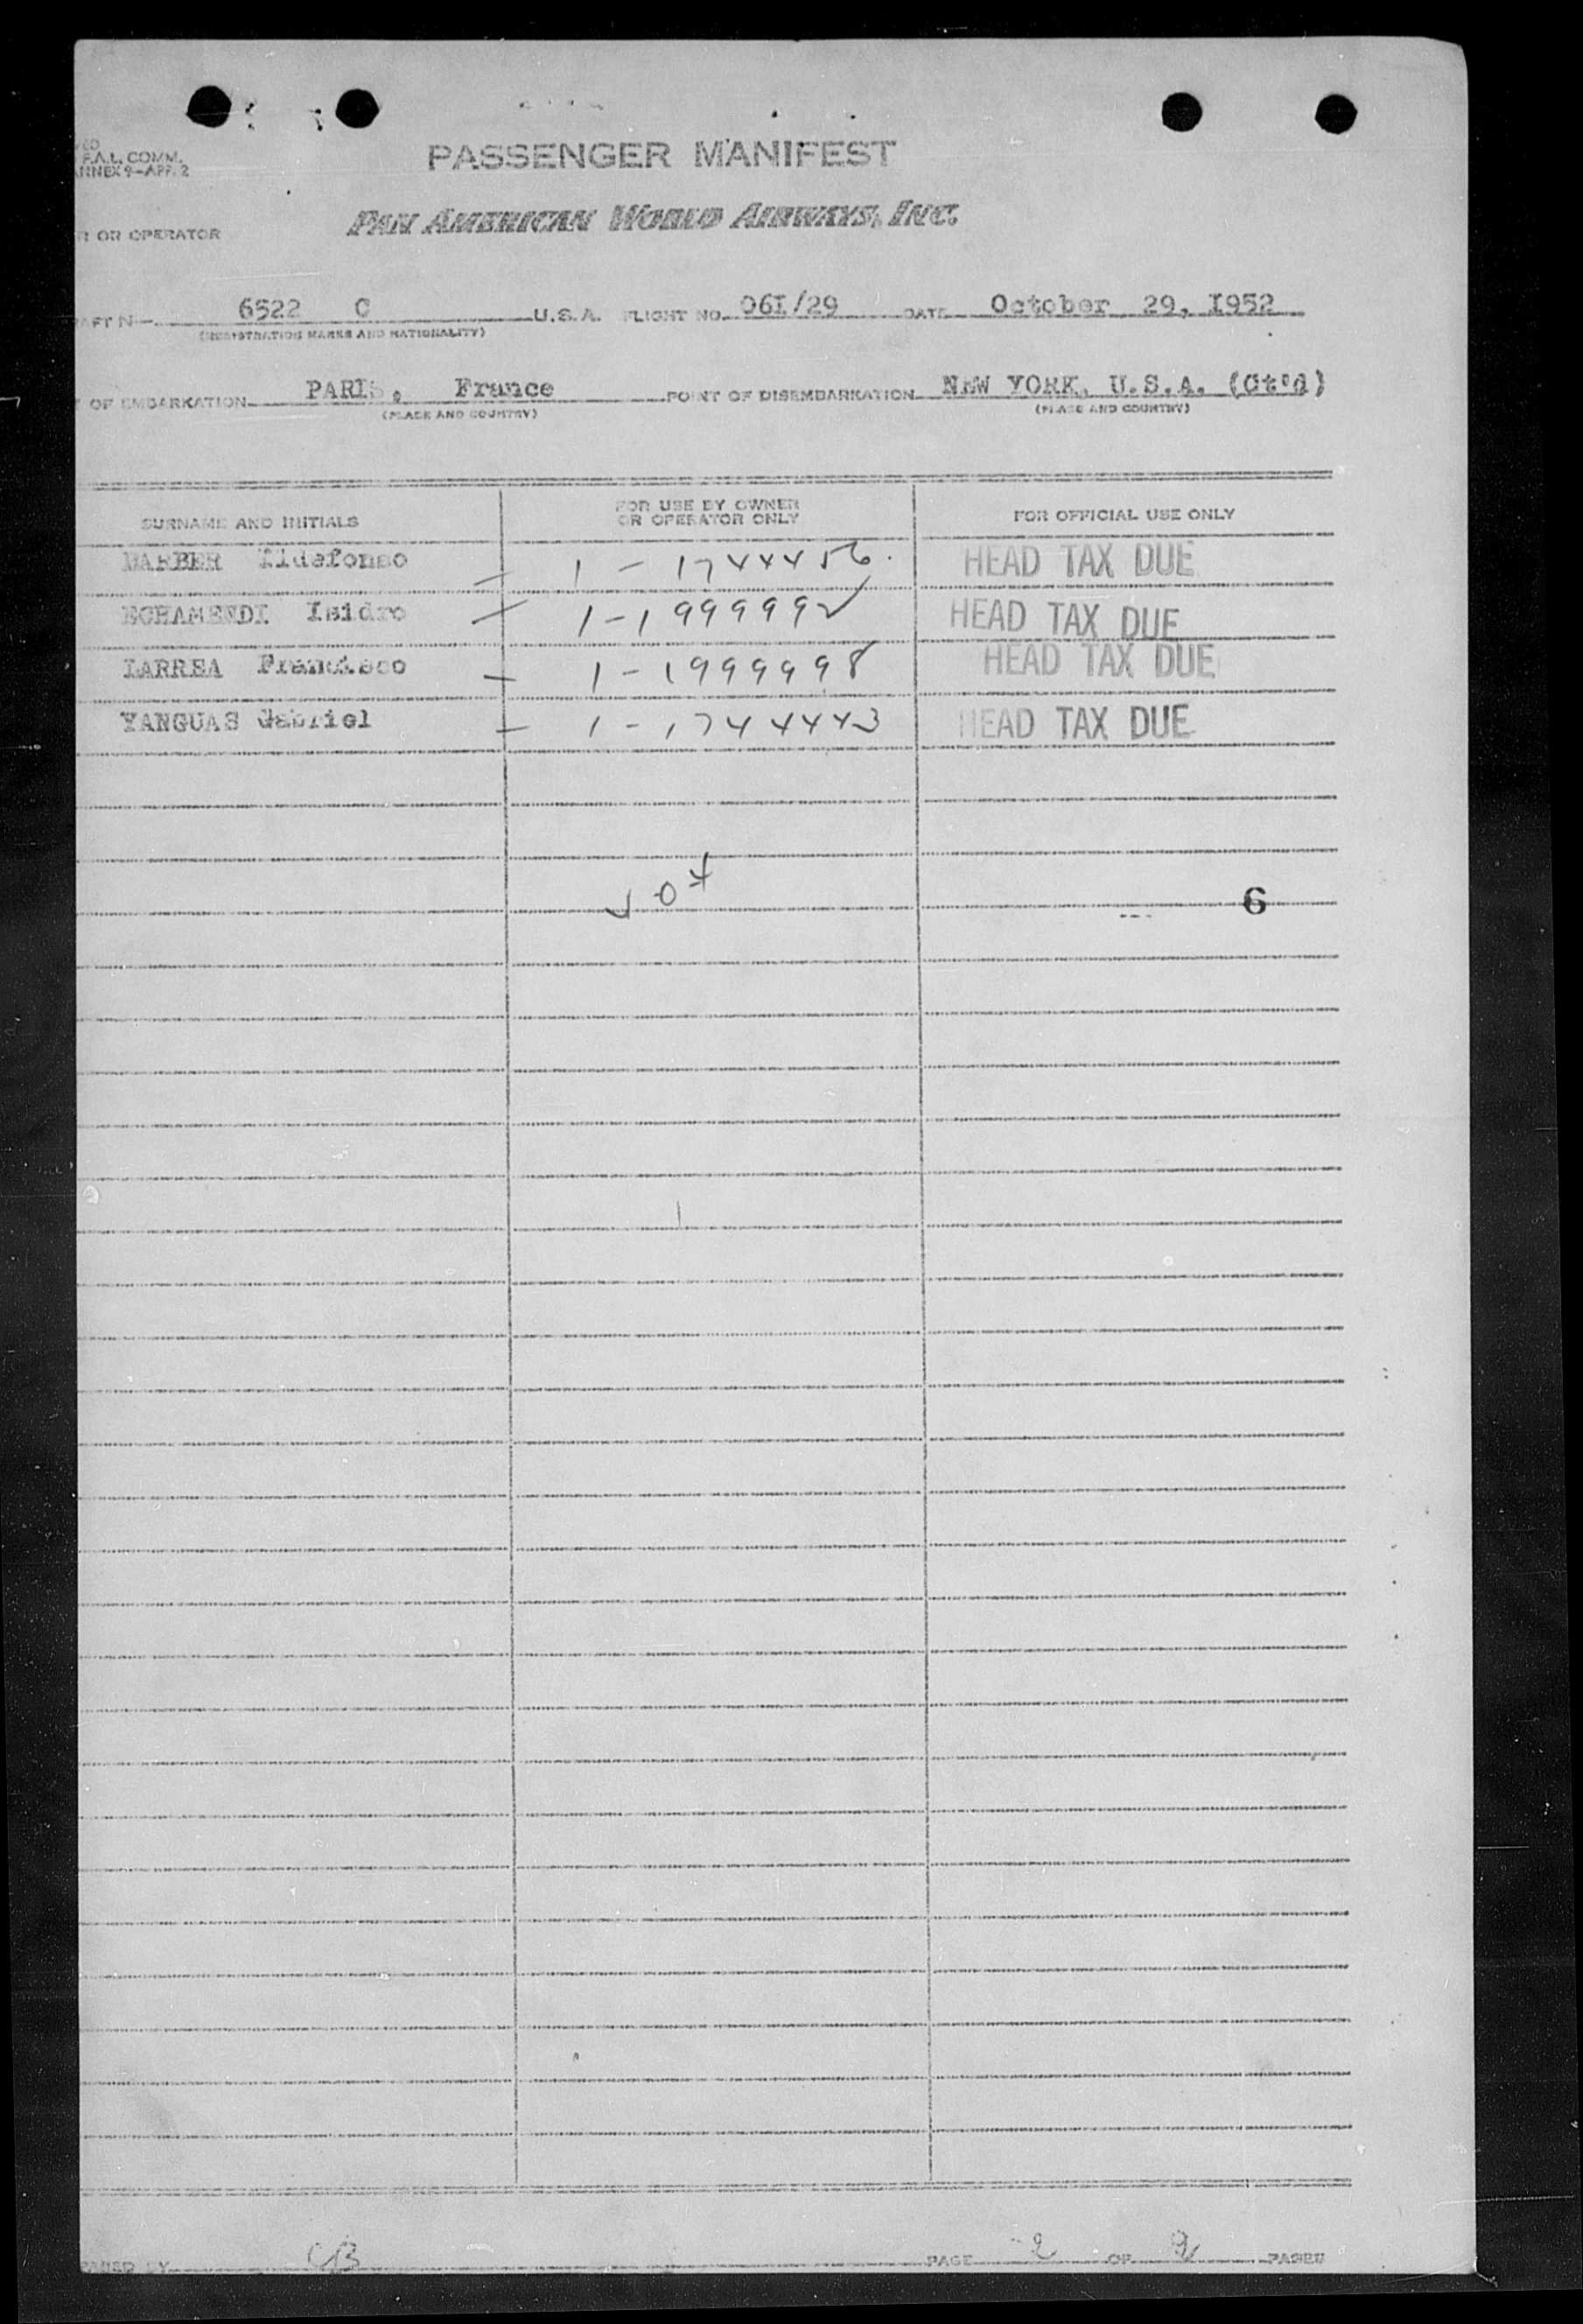 PASSENGER MANIFEST
F.A.L. COMM.
ANNEX 9-APP. 2
PAN AMERICAN WORLD AIRWAYS, INC.
R OR OPERATOR
AFT N 6522 C U.S.A. FLIGHT NO. 06I/29 DATE October 29, I952
(REGISTRATION MARKS AND NATIONALITY)
T OF EMBARKATION PARIS, France POINT OF DISEMBARKATION NEW YORK, U.S.A. (Ct'd)
(PLACE AND COUNTRY) (PLACE AND COUNTRY)
SURNAME AND INITIALS FOR USE BY OWNER OR OPERATOR ONLY FOR OFFICIAL USE ONLY
BARBER Ildefonso - 1 - 1744456. HEAD TAX DUE
ECHAMENDI Isidro - 1-1999992 HEAD TAX DUE
LARREA Francisco - 1-1999998 HEAD TAX DUE
YANGUAS Gabriel - 1-1744443 HEAD TAX DUE
6
PARED BY CB PAGE 2 OF 2 PAGES